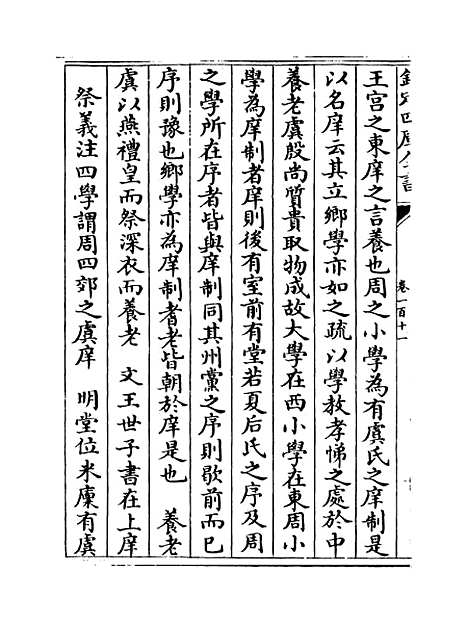 欽定四庫全書
卷一百十一
王宫之東庠之言養也周之小學為有虞氏之庠制是
以名庠云其立鄉學亦如之疏以學教孝悌之處於中
養老虞殷尚質貴取物成故大學在西小學在東周小
學為庠制者庠則後有室前有堂若夏后氏之序及周
之學所在序者皆與庠制同其州黨之序則歇前而已
序則豫也鄉學亦為庠制者耆老皆朝於庠是也　養老
虞以燕禮皇而祭深衣而養老　文王世子書在上庠
祭義注四學謂周四郊之虞庠　明堂位米廩有虞